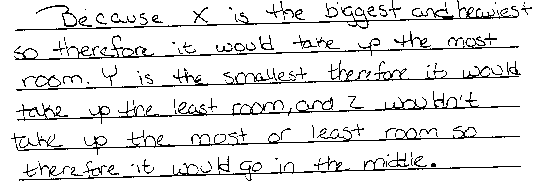 Because X is the biggest and heaviest
so therefore it would take up the most
room. Y is the smallest therefore it would
take up the least room, and Z wouldn't
take up the most or least room so
therefore it would go in the middle.